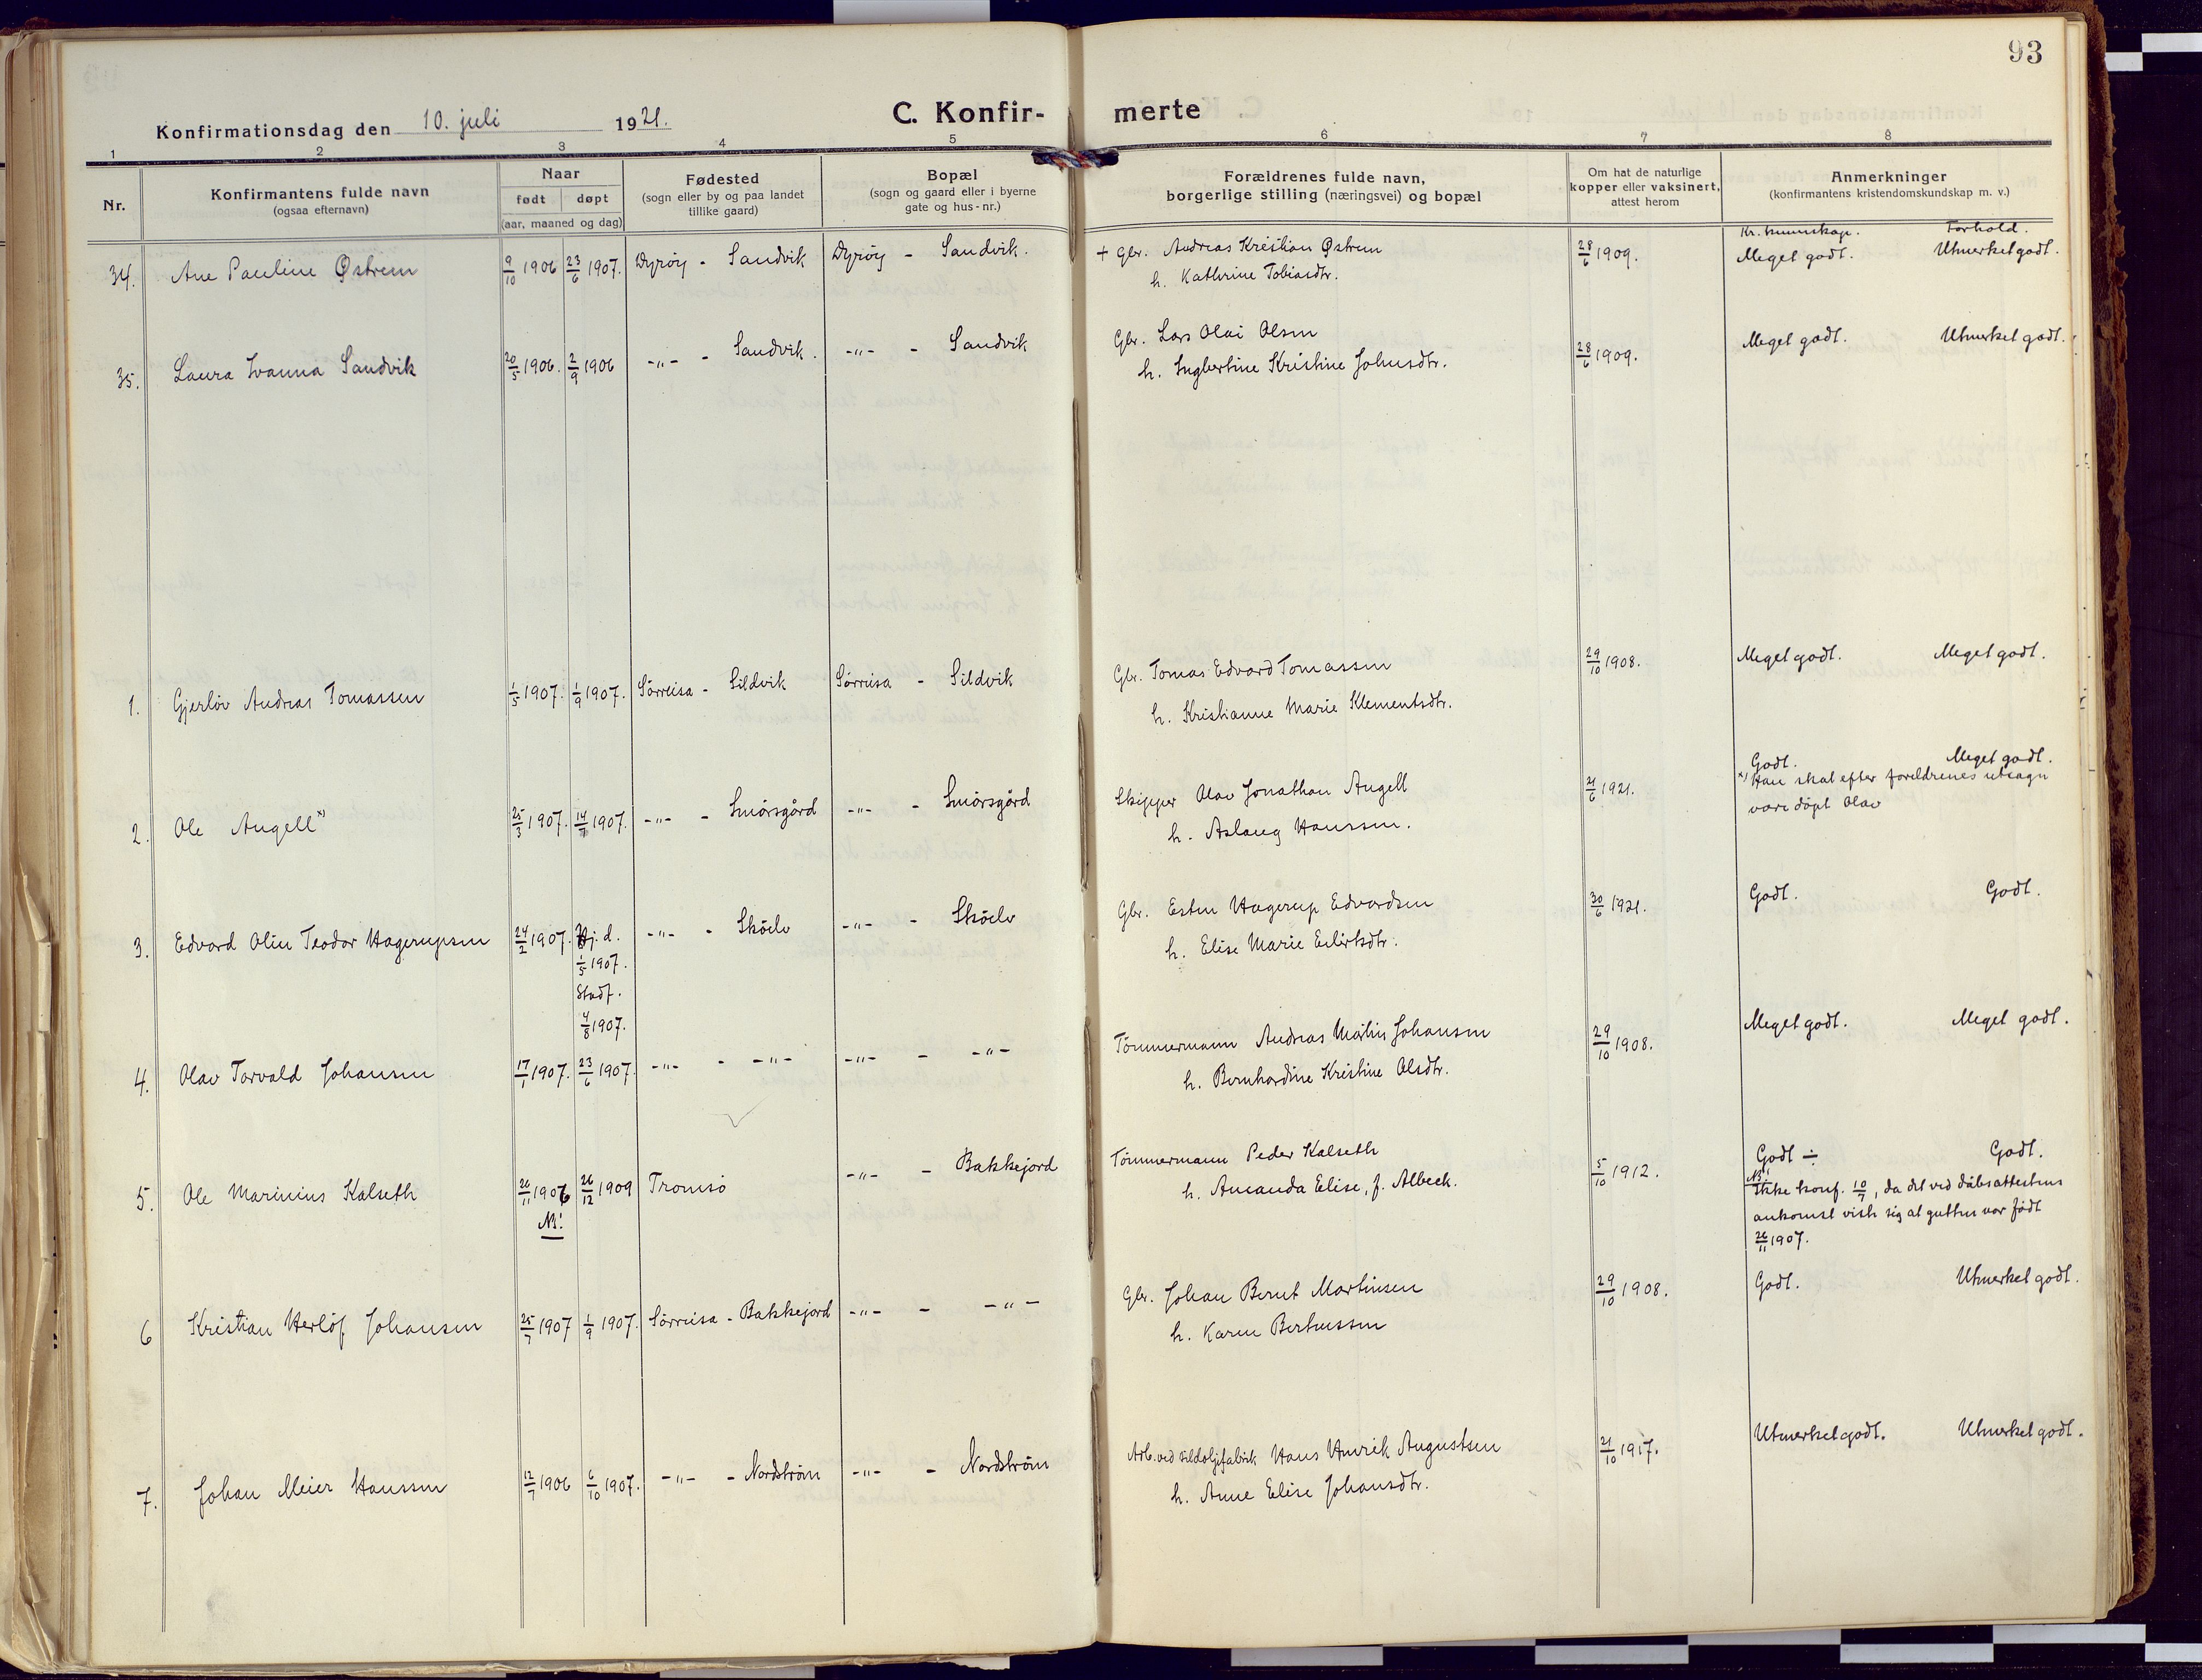 93
Konfirmationsdag den 10. juli 1921.
C. Konfir- merte
1 2 3 4 5 6 7 8
Nr.
Konfirmantens fulde navn
(ogsaa efternavn)
Naar
født døpt
(aar, maaned og dag)
Fødested
(sogn eller by og paa landet
tillike gaard)
Bopæl
(sogn og gaard eller i byerne
gate og hus-nr.)
Forældrenes fulde navn,
borgerlige stilling (næringsvei) og bopæl
Om hat de naturlige
kopper eller vaksinert,
attest herom
Anmerkninger
(konfirmantens kristendomskundskap m. v.)
Kr. kunnskap. Forhold.
34. Ane Pauline Østrem 9/10 1906 23/6 1907. Dyröy - Sandvik Dyröy - Sandvik. + Gbr. Andreas Kristian Østrem 28/6 1909. Meget godt. Utmerket godt.
h. Kathrine Tobiasdtr.
35. Laura Ivanna Sandvik 20/5 1906. 2/9 1906 -"- - Sandvik. -"- - Sandvik Gbr. Lars Olai Olsen 28/6 1909. Meget godt. Utmerket godt.
h. Ingbertine Kristine Johnsdtr.
1. Gjerløv Andreas Tomassen 1/5 1907. 1/9 1907. Sörreisa - Sildvik Sörreisa - Sildvik Gbr. Tomas Edvard Tomassen 29/10 1908. Meget godt. Meget godt.
h. Kristianne Marie Klementsdtr.
2. Ole Angell x) 25/3 1907. 14/7 1907. -"- - Smörsgård -"- - Smörsgård Skipper Olav Jonathan Angell 21/6 1921. Godt. Meget godt.
h. Aslaug Hanssen.
x) Han skal efter foreldrenes utsagn
være döpt Olav
3. Edvard Olin Teodor Hagerupsen 24/2 1907. Hj. d. -"- - Sköelv -"- - Sköelv Gbr. Esten Hagerup Edvardsen 30/6 1921. Godt. Godt.
1/5 1907.
Stadf.
4/8 1907.
h. Elise Marie Eilertsdtr.
4. Olav Torvald Johansen 17/1 1907. 23/6 1907. -"- - -"- -"- - -"- Tömmermann Andreas Martin Johansen 29/10 1908. Meget godt. Meget godt.
h. Bernhardine Kristine Olsdtr.
5. Ole Marinius Kalseth 26/11 1906 26/12 1909 Tromsö -"- - Bakkejord Tömmermann Peder Kalseth 5/10 1912. Godt ÷ Godt.
NB!
h. Amanda Elise, f. Albeck.
NB! Ikke konf. 10/7, da det ved dåbsattestens
ankomst viste sig at gutten var født
26/11 1907.
6 Kristian Herlöf Johansen 25/7 1907 1/9 1907. Sörreisa - Bakkejord -"- - -"- Gbr. Johan Bernt Martinsen 29/10 1908. Godt. Utmerket godt.
h. Karen Berteussen
7. Johan Meier Hanssen 12/7 1906 6/10 1907. -"- - Nordström -"- - Nordström Arb. ved sildoljefabrik Hans Henrik Augustsen 21/10 1917. Utmerket godt. Utmerket godt.
h. Anne Elise Johansdtr.